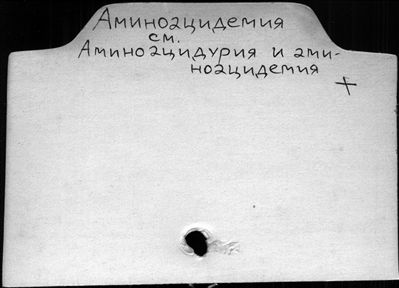 Аминоацидемия
см.
Аминоацидурия и ами-
ноацидемия
+